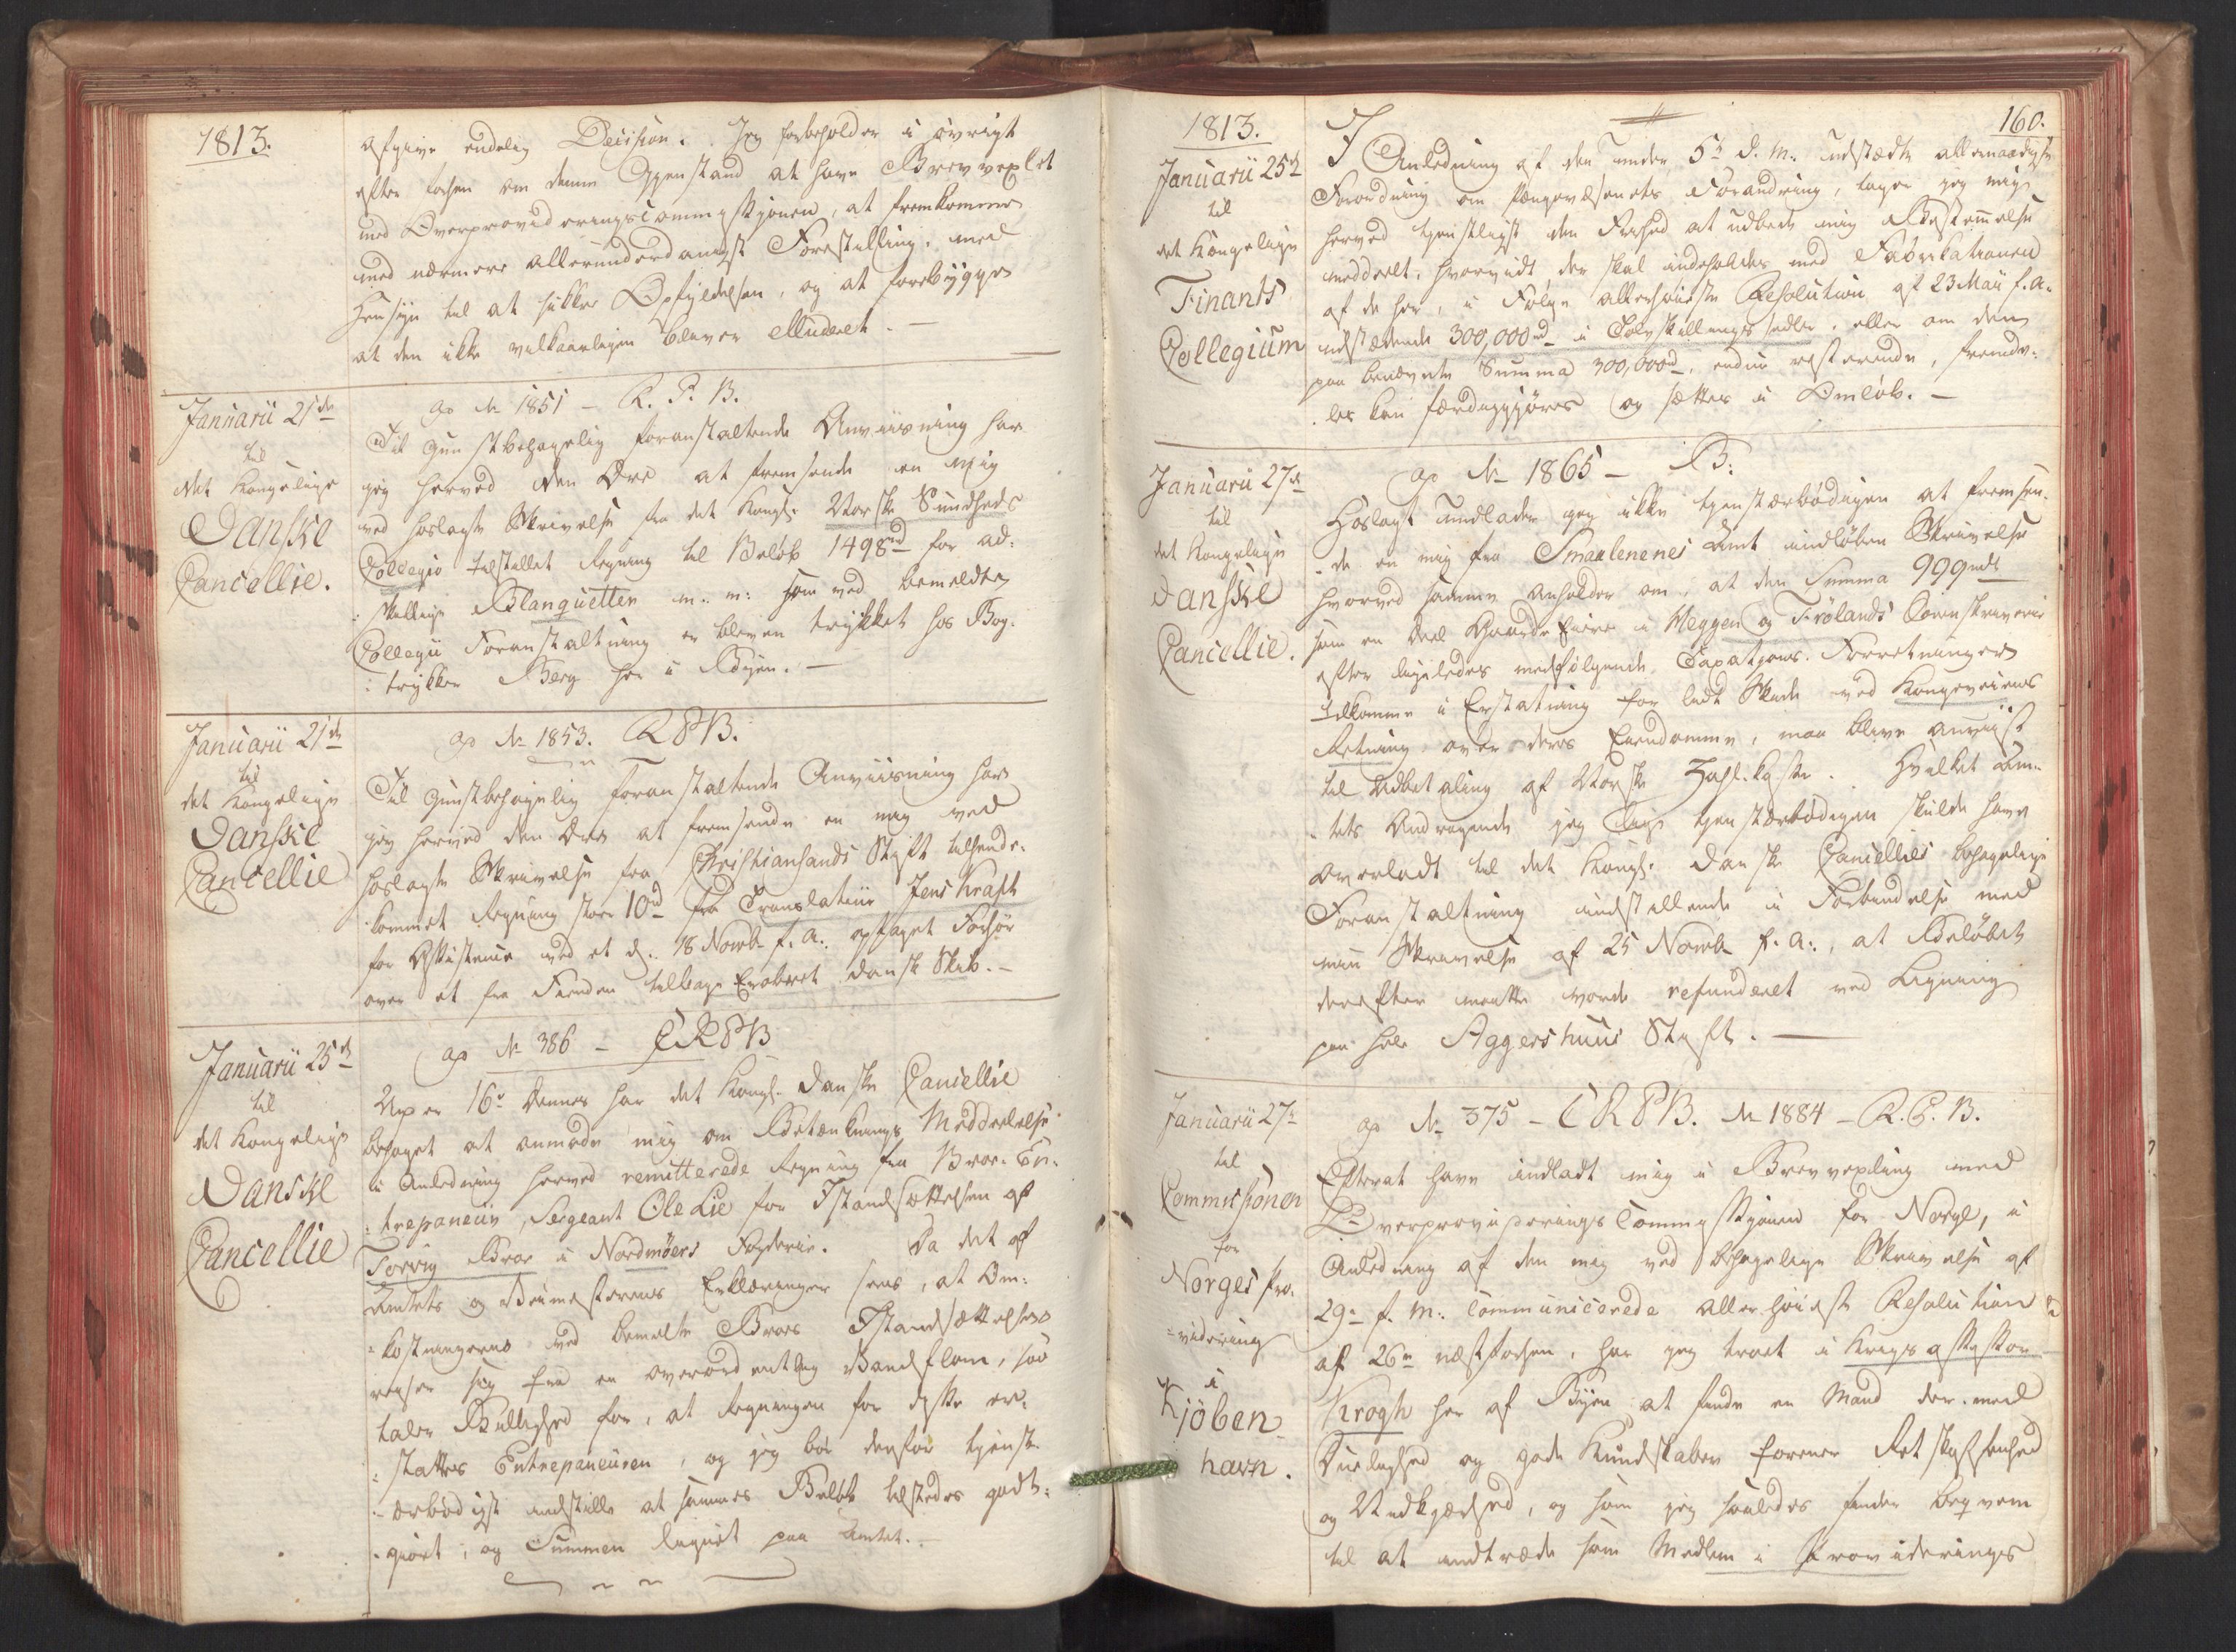 1813.
afgive endelig Decision. Jeg forbeholder i øvrigt
efter forhen om denne Gjenstand at have Brevvexlet
med Overprovideringscommisjonen, at fremkomme
med nærmere allerunderdanigst Forestilling, med
Hensyn til at sikkre Opfyldelsen, og at forebygge
at den ikke vilkaarligen bliver elluderet. —
Januarii 21de
til
det Kongelige
Danske
Cancellie.
ap No 1851 — R. P. B.
Til gunstbehagelig foranstaltende Anviisning har
jeg herved den Ære at fremsende en mig
ved hoslagte Skrivelse fra det Kongl: Norske Sundheds
Collegio tilstillet Regning til Beløb 1498rd for ad-
skillige Blanquetter m: m: som ved bemeldte
Collegii Foranstaltning er bleven trykket hos Bog-
trykker Berg her i Byen. —
Januarii 21de
til
det Kongelige
Danske
Cancellie
ap No 1853. R P B.
Til gunstbehagelig foranstaltende Anviisning har
jeg herved den Ære at fremsende en mig ved
hoslagte Skrivelse fra Christiansands Stift tilhænde-
kommet Regning stor 10rd fra Translatiur Jens Kraft
for Assistence ved et d. 18 Novb f. a. optaget Forhør
over et fra Fienden tilbage Erobret dansk Skib. —
Januarii 25de
til
det Kongelige
Danske
Cancellie
ap No 386 — C R P B
Under 16de dennes har det Kongl. danske Cancellie
behaget at anmode mig om Betænknings Meddeelelse
i Anledning herved remitterede Regning fra Broe-En-
trepaneur, Sergeant Ole Lie for Istandsættelsen af
Torvig Broe i Nordmøers Fogderie. Da det af
Amtets og Veimesterens Erklæringer sees, at Om-
kostningerne ved bemelte Broes Istandsættelse
reiser sig fra en overordentlig Vandflom, saa
taler Billighed for, at Regningen for disse er-
stattes Entrepaneuren, og jeg bør derfor tjenst-
ærbødigst indstille at sammes Beløb tilstedes godt-
gjort, og Summen lignet paa Amtet. —
160.
1813.
Januarii 25de
til
det Kongelige
Finants
Collegium
I Anledning af den under 5te d. M. udstædte allernaadigste
Forordning om Pengevæsenets Forandring, tager jeg mig
herved tjenstligst den Frihed at udbede mig Bestemmelse
meddeelt, hvorvidt der skal indeholdes med Fabrikationen
af de her, i Følge allerhøieste Resolution af 23 Maii f. a.
udstædende 300,000rd i Tolvskillings sedler, eller om den
paa benævnte Summa 300,000rd, endnu resterende, fremde-
les kan færdiggjøres og sættes i Omløb. —
Januarii 27de
til
det Kongelige
Danske
Cancellie.
ap No 1865 — B:
Hoslagt undlader jeg ikke tjenstærbødigen at fremsen-
de en mig fra Smaalenenes Amt indløben Skrivelse
hvorved samme anholder om, at den Summa 999rdl
som en Deel Gaard Eiere i Heggen og Frølands Sorenskriverie
efter ligeledes medfølgende Taxatjons-Forretninger
tilkomme i Erstatning for lidt Skade ved Kongeveiens
Retning over deres Eiendomme, maa blive anviist
til Udbetaling af Norske Zahl-Kasse. Hvilket Am-
tets Andragende jeg tjenstærbødigen skulde have
overladt til det Kongl. danske Cancellies behagelige
Foranstaltning indstillende i Forbindelse med
min Skrivelse af 25 Novb f. a., at Beløbet
derefter maatte vorde refunderet ved Ligning
paa hele Aggershuus Stift. —
Januarii 27de
til
Commissionen
for
Norges Pro-
videring
i
Kjöben-
havn.
ap No 375 — C R P B. No 1884 — R. P. B.
Efterat have indladt mig i Brevvexling med
Overprovideringscommissjonen for Norge, i
Anledning af den mig ved behagelige Skrivelse af
29de f. M. communicerede allerhøieste Resolution
af 26de næstforhen, har jeg troet i Krigsassessor
Krogh her af Byen at finde en Mand der med
Duelighed og gode Kundskaber forener Retskaffenhed
og Vindskibelighed, og som jeg saaledes finder beqvem
til at indtræde som Medlem i Provideringscom